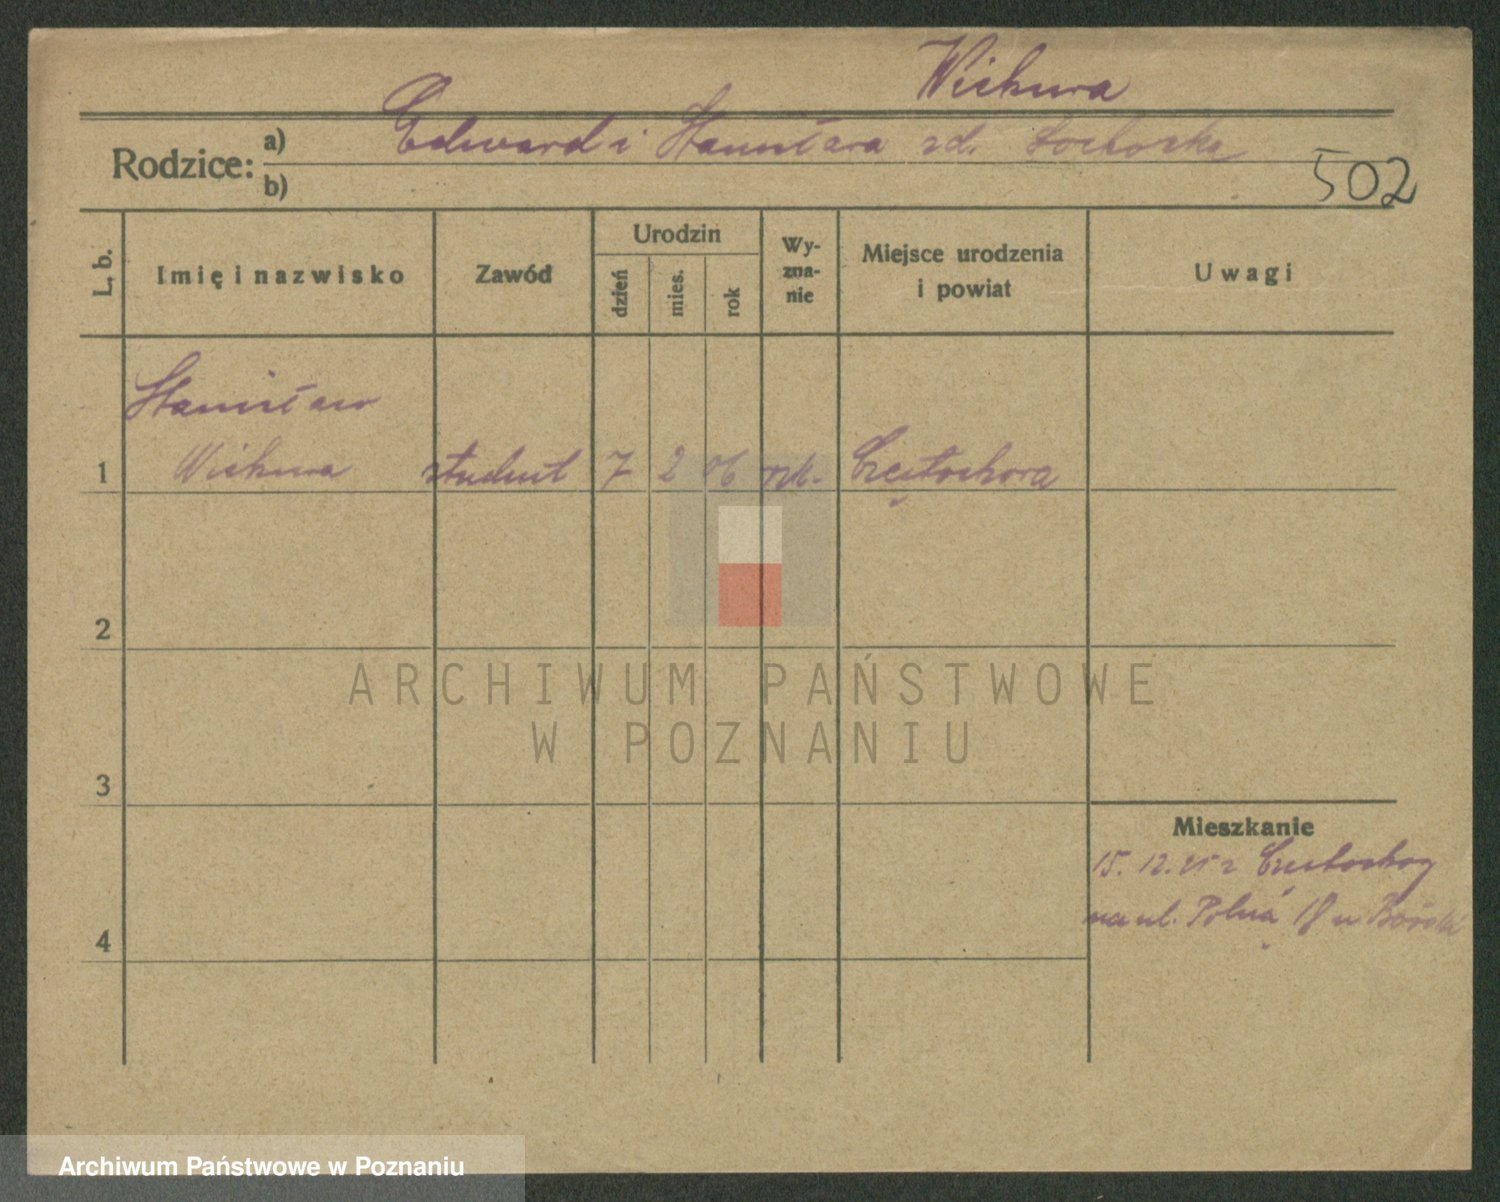 Wichura
Edward i Stanisława zd.
Rodzice: a)
b)
502
L. b.
Imię i nazwisko
Zawód
Urodzin
dzień
mies.
rok
Wy-
zna-
nie
Miejsce urodzenia
i powiat
Uwagi
Stanisław
1 Wichura student 7 2 06 rzk. Częstochowa
2
ARCHIWUM PAŃSTWOWE
W POZNANIU
3
Mieszkanie
15. 12. 25 z
na ul. Polną 18 u
4
Archiwum Państwowe w Poznaniu